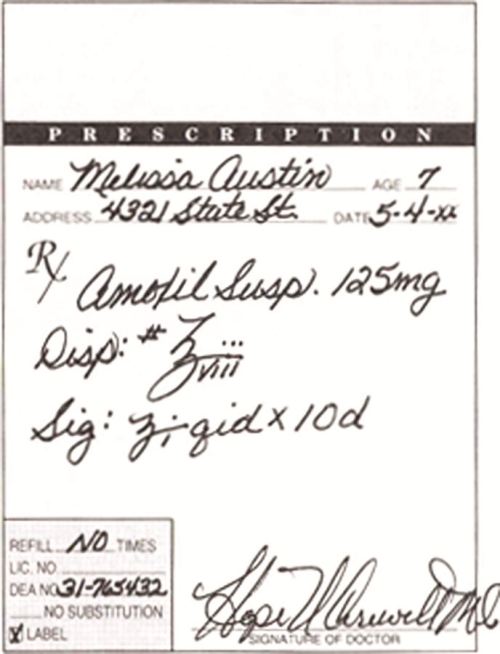 PRESCRIPTION
NAME Melissa Austin AGE 7
ADDRESS 4321 State St. DATE 5-4-xx
Rx
Amoxil Susp. 125mg
Disp: # ℥viii
Sig: ʒi qid x 10d
REFILL NO TIMES
LIC. NO
DEA NO 31-765432
NO SUBSTITUTION
X LABEL
Hope MD
SIGNATURE OF DOCTOR